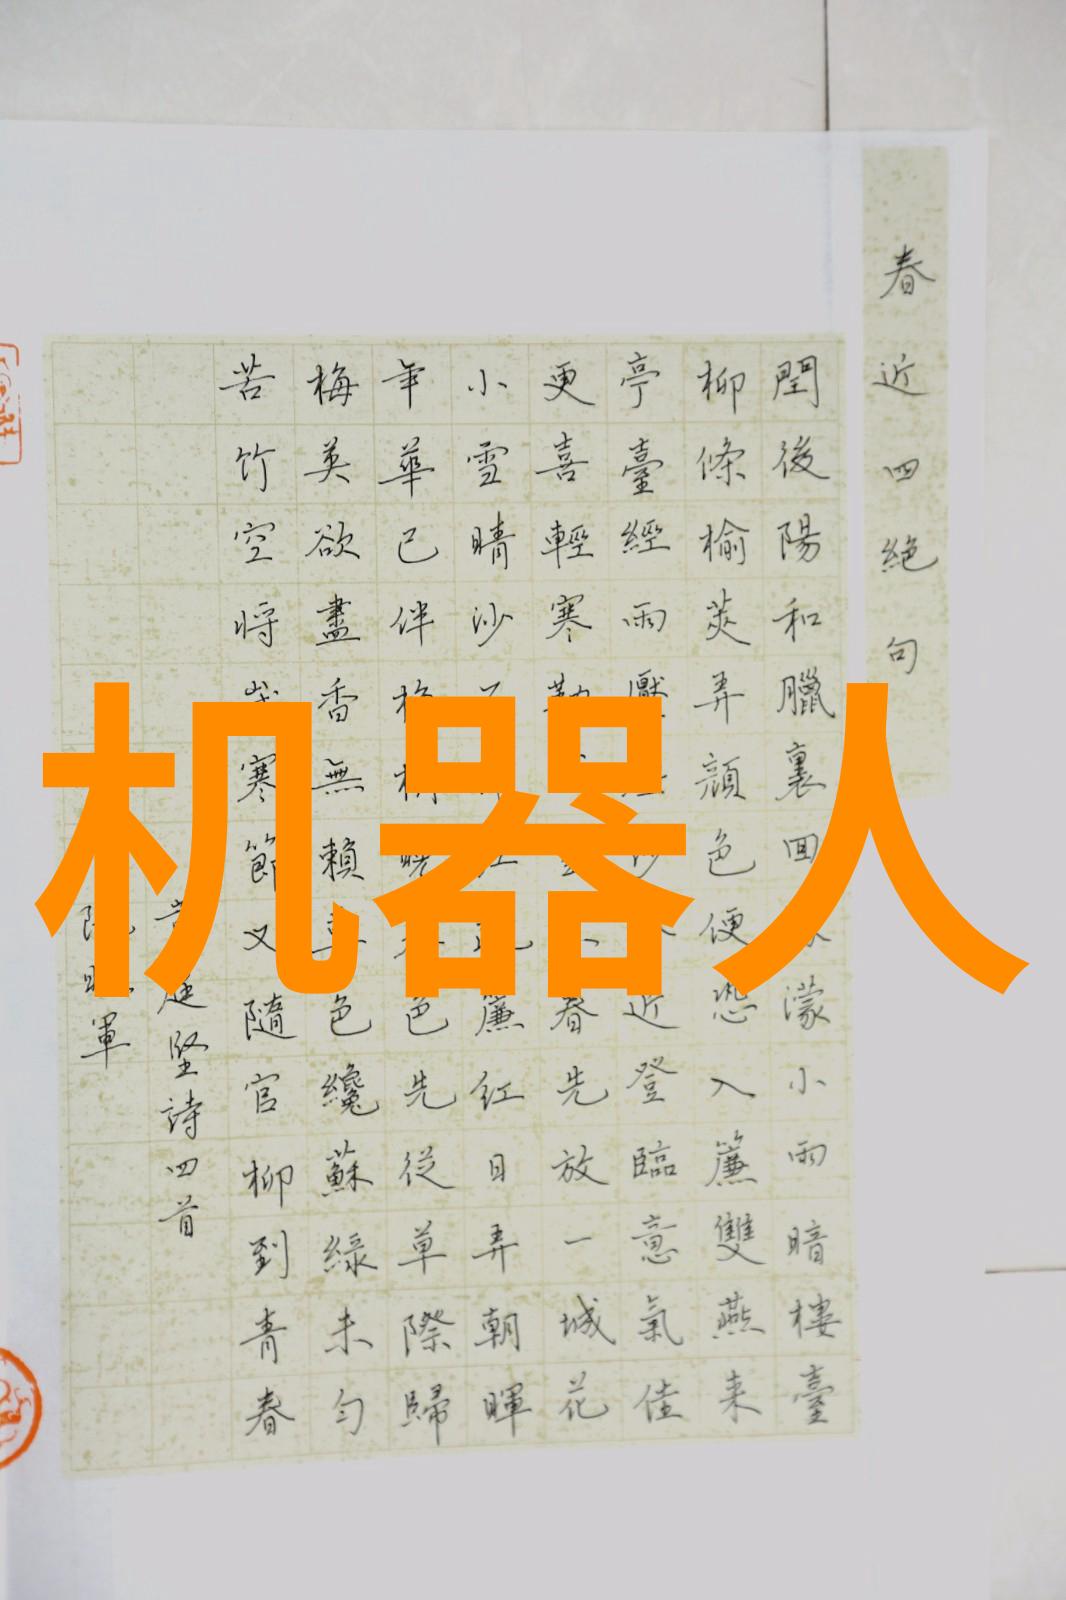 春近四絕句
閏後陽和臘裏回濛小雨暗樓臺
柳條榆莢弄顏色便恐入簾雙燕來
亭臺經雨壓沙近登臨意氣佳
更喜輕寒勒春先放一城花
小雪晴沙簾紅日弄朝暉
年華已伴梅梢晚色先從草際歸
梅英欲盡香無賴草色纔蘇綠未勻
苦竹空將歲寒節又隨官柳到青春
庭堅詩四首
軍
机器人